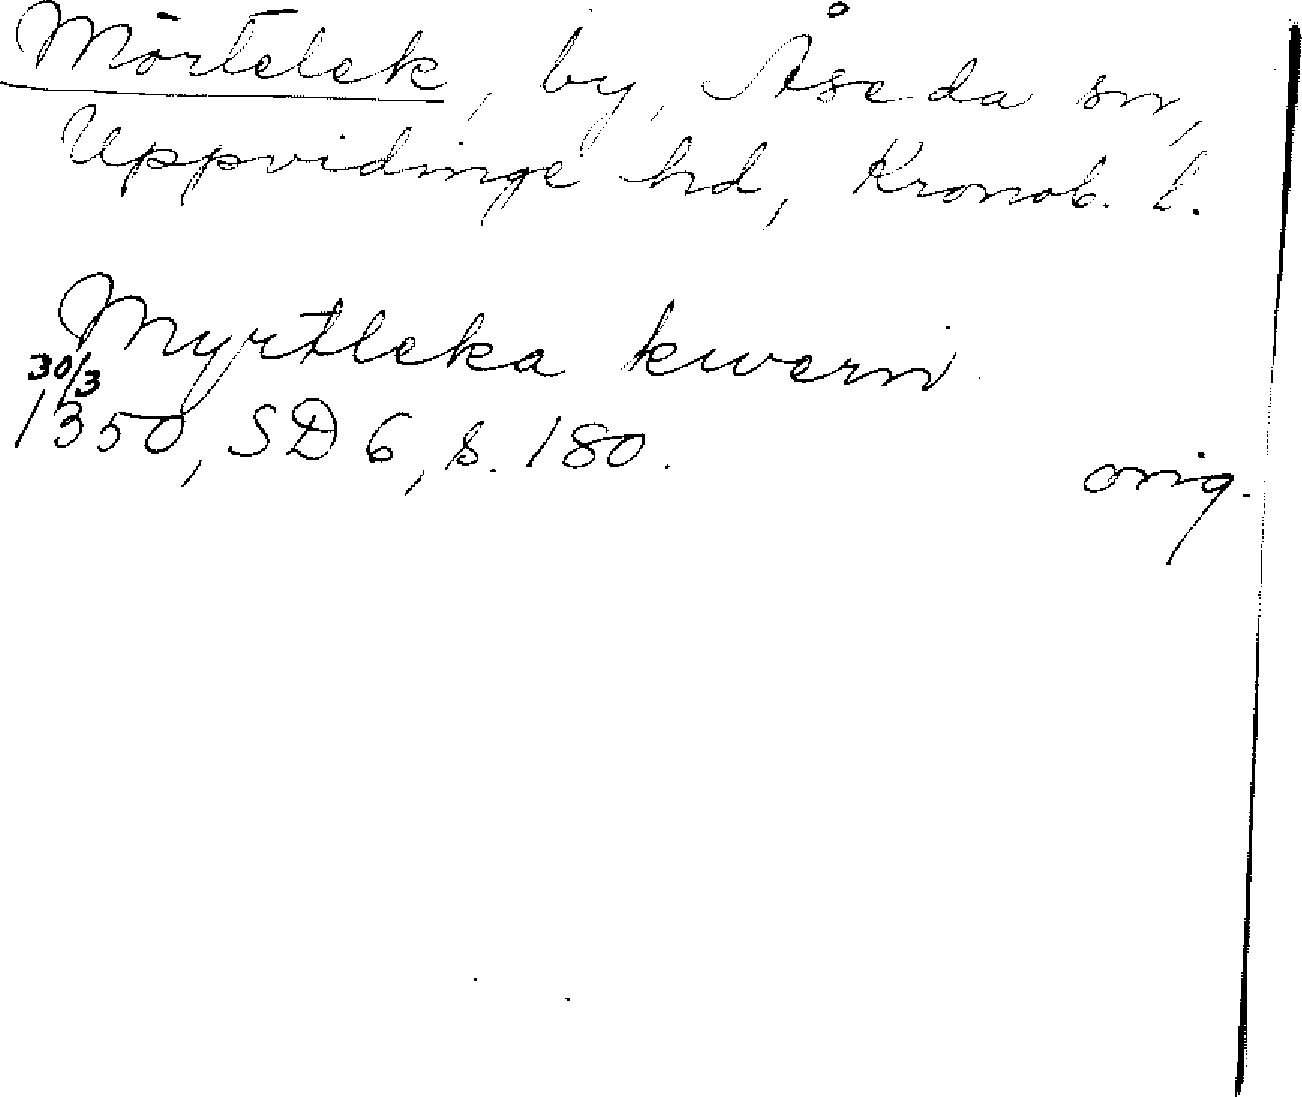 Mörtelek, by, Åseda sn,
Uppvidinge hd, Kronob. l.
Myrtleka kwern
30/3
1350, SD 6, s. 180.
orig.